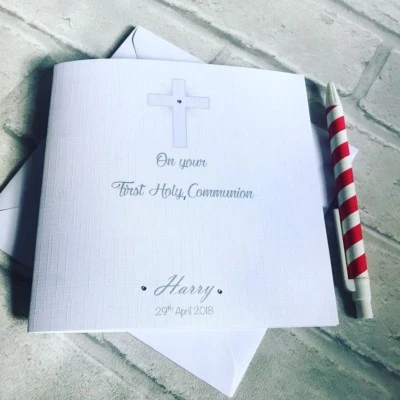 On your
First Holy Communion
Harry
29th April 2018